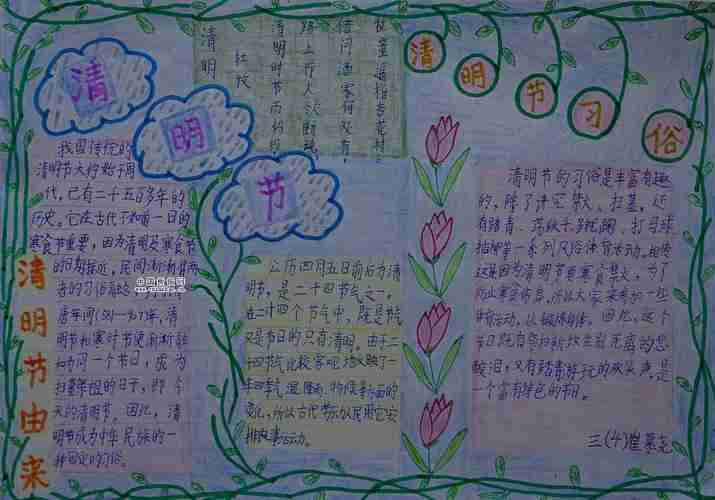 清
明
节
清明
杜牧
清明时节雨纷纷
路上行人欲断魂
借问酒家何处有
牧童遥指杏花村
清明节习俗
清明节由来
我国传统的
清明节大约始于周
代,已有二千五百多年的
历史。它在古代不如前一日的
寒食节重要,因为清明及寒食节
的日期接近,民间渐渐将两
者的习俗
唐年间
清
明节和寒食节便渐渐融
和为同一个节日,成为
扫墓祭祖的日子,即今
天的清明节。因此,清
明节成为中华民族的一
种固定的习俗。
公历四月五日前后为清
明节,是二十四节气之一。
在二十四个节气中,既是节气
又是节日的只有清明。由于二
十四节气比较客观地反映了一
年四季气温、降雨、物候等方面的
变化,所以古代劳动人民用它安
排农事活动。
清明节的习俗是丰富有趣
的,除了讲究禁火、扫墓,还
有踏青、荡秋千、蹴鞠、打马球
插柳等一系列风俗体育活动。相传
这是因为清明节要寒食禁火,为了
所以大家来参加一些
体育活动,以锻炼身体。因此,这个
节日既有
酸泪,又有踏青游玩的欢笑声,是
一个富有特色的节日。
三(4)